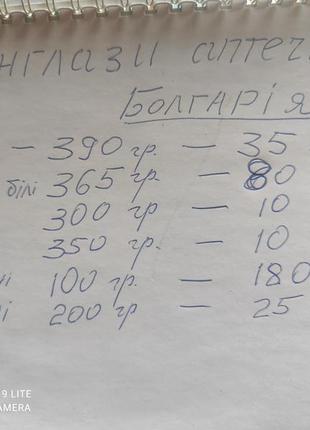 нглази аптеч
Болгарія
- 390 гр. - 35
білі 365 гр. - 80
300 гр - 10
350 гр. - 10
ні 100 гр. - 180
і 200 гр - 25
9 LITE
AMERA